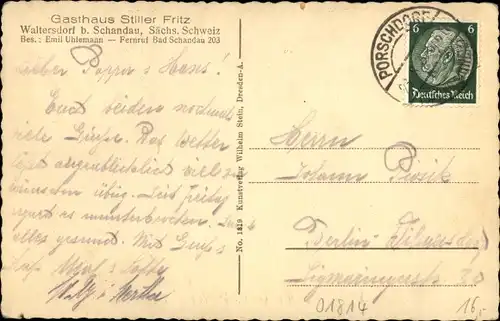 Gasthaus Stiller Fritz
Waltersdorf b. Schandau, Sächs. Schweiz
Bes.: Emil Uhlemann — Fernruf Bad Schandau 203
Lieber Pappa u. Hans!
Euch beiden nochmals
viele Grüße. Das Wetter
läßt augenblicklich viel zu
wünschen übrig. Seit Freitag
regnet es ununterbrochen. Sonst
alles gesund. Mit Gruß
No. 1819 Kunstverlag Wilhelm Stein, Dresden-A.
PORSCHDORF
6 6
Deutsches Reich
Herrn
Johann
Berlin
Sigmaringerstr. 30
01814
16,-